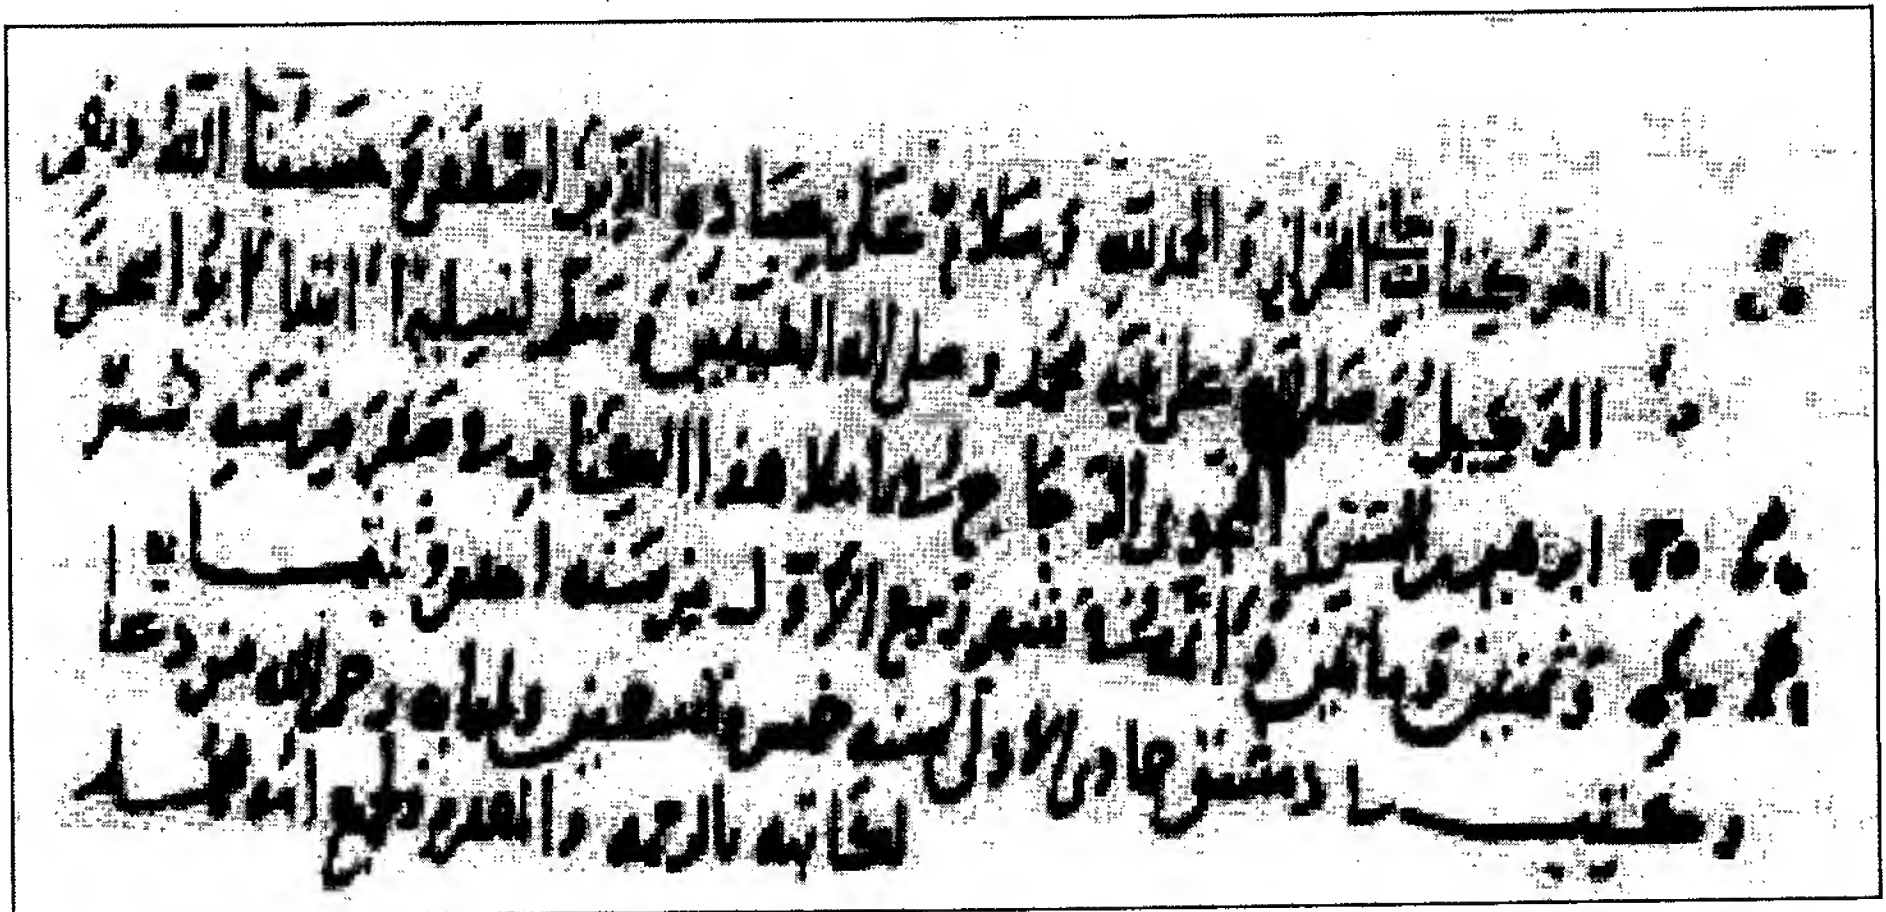 اخر كتاب معاني القرآن والحمد لله وسلام على عباده الذين اصطفى وحسبنا الله ونعم
الوكيل وصلى الله على نبيه محمد وعلى اله الطيبين وسلم تسليما ابتدأ ابو اسحق
ابرهيم بن السري النحوي الزجاج باملا هذا الكتاب في صفر من سنه خمس
وثمنين ومائتين و اتمه في شهر ربيع الاول من سنة احدى
وكتب دمشق جمادى الاولى سنه خمس وتسعين وثلثمايه رحم الله من دعا
لكاتبه بالرحمه والمغفره ولجميع امه